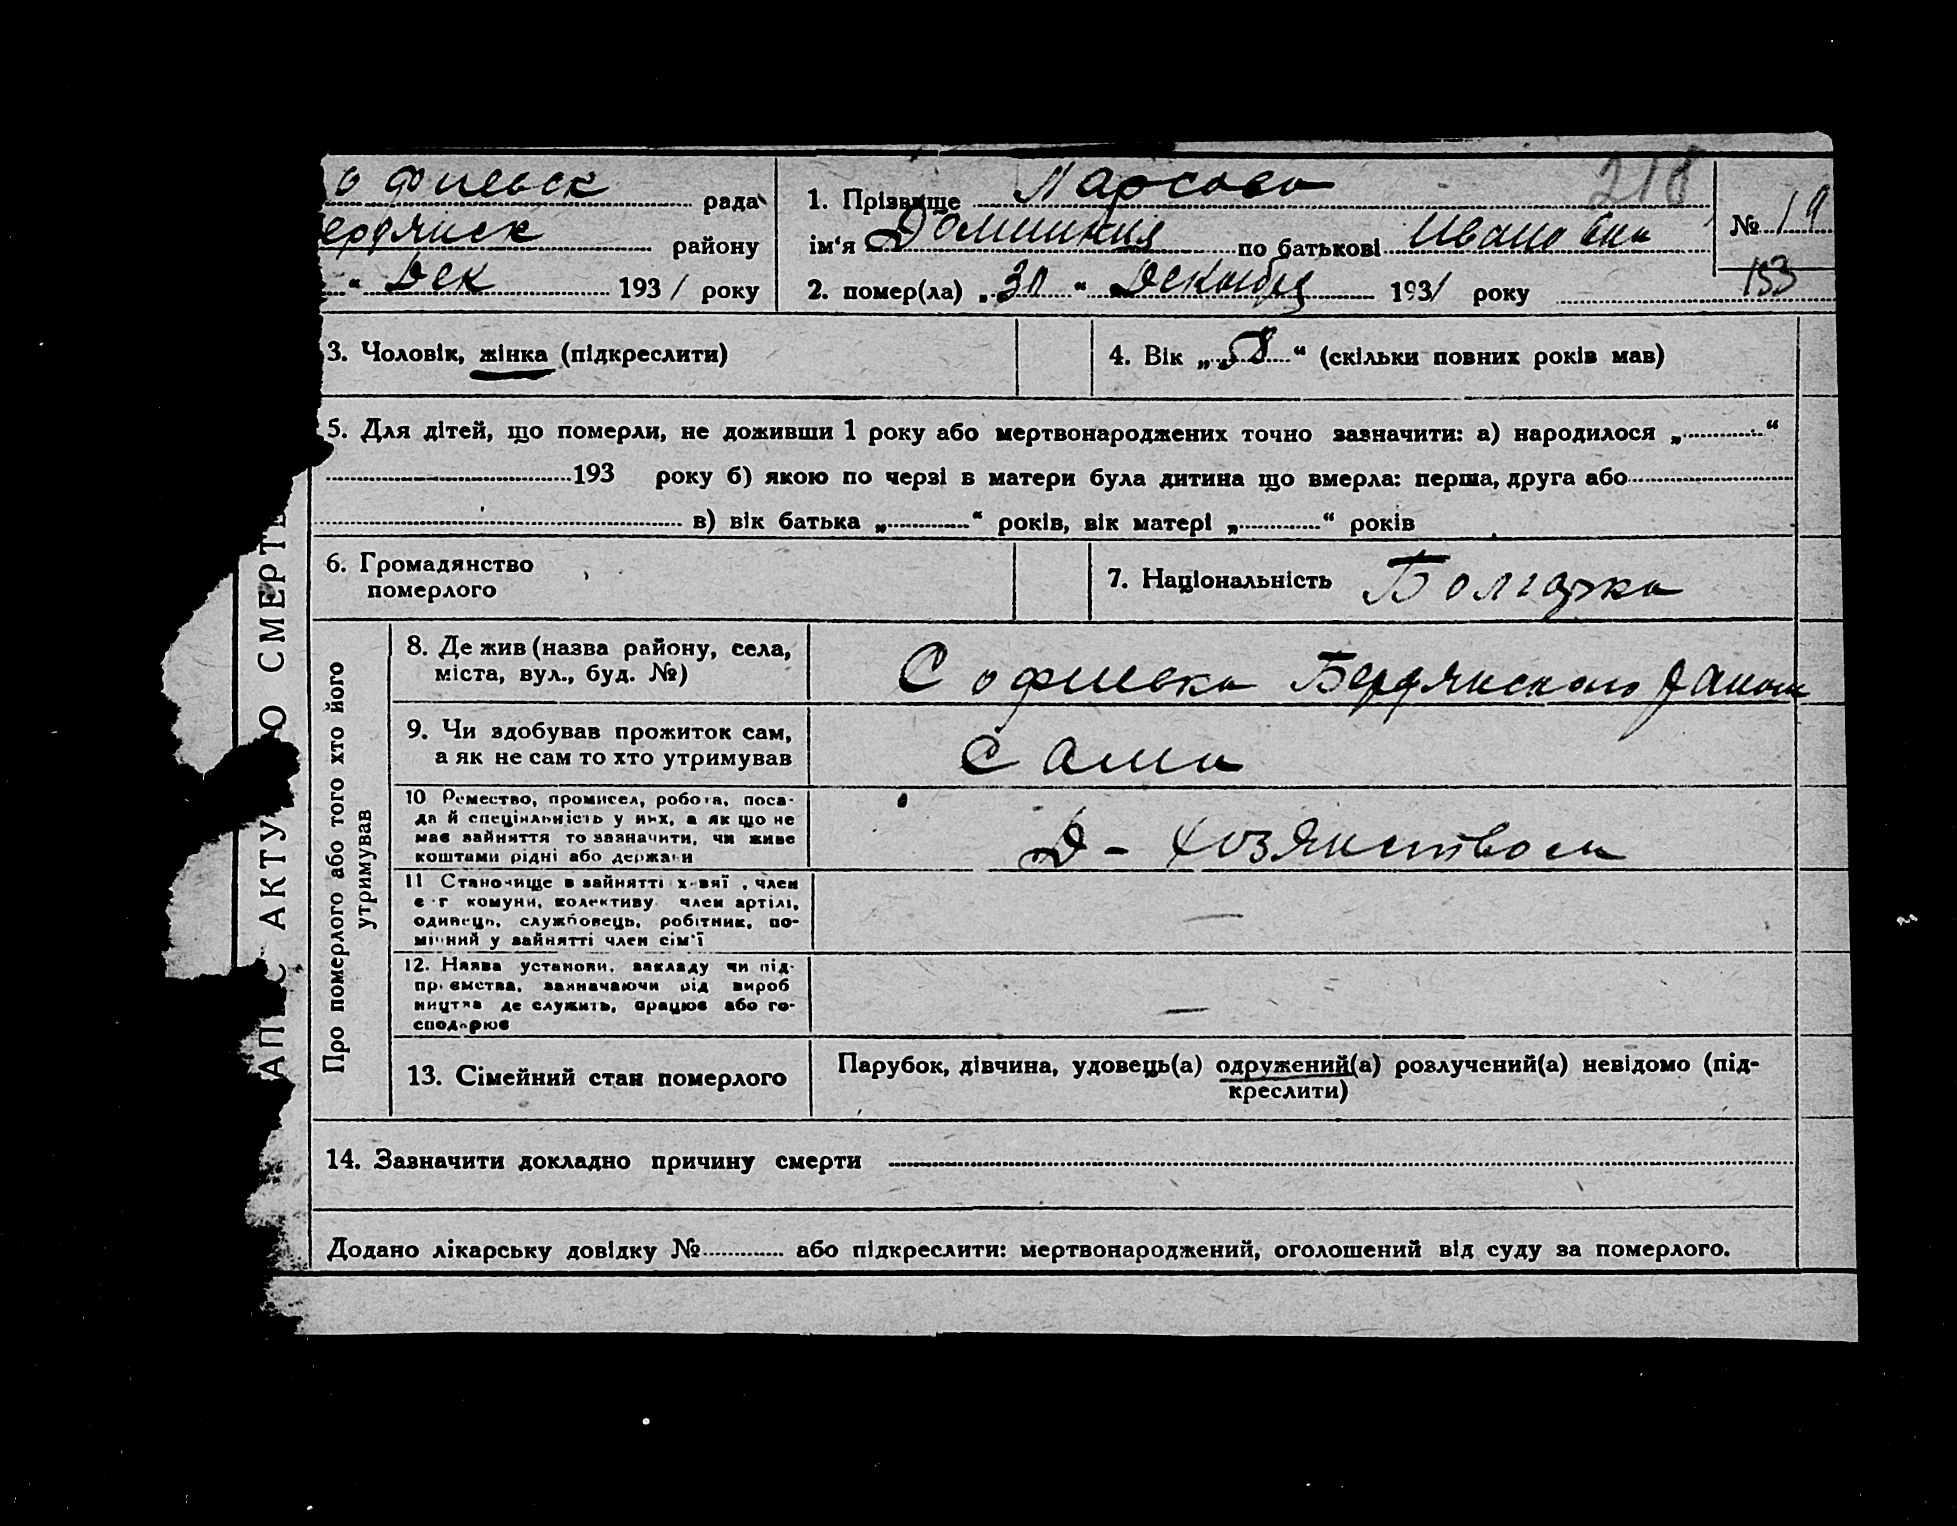 офиевск рада
ердянск району
“ Дек 1931 року
1. Прізвище Марсова
218
ім‘я Домникия по батькові Ивановна
№ 19
2. помер(ла) „30“ Декабря 1931 року
153
3. Чоловік, жінка (підкреслити)
4. Вік „58“ (скільки повних років мав)
5. Для дітей, що померли, не доживши 1 року або мертвонароджених точно зазначити: а) народилося „ “
193 року б) якою по черзі в матери була дитина що вмерла: перша, друга або
в) вік батька „ “ років, вік матері „ “ років
6. Громадянство
померлого
7. Національність Болгарка
АПИС АКТУ О СМЕРТЬ
Про померлого або того хто його
утримував
8. Де жив (назва району, села,
міста, вул., буд. №)
Софиевка Бердянского района
9. Чи здобував прожиток сам,
а як не сам то хто утримував
Сама
10 Ремество, промисел, робота, поса-
да й спеціяльність у них, а як що не
має зайняття то зазначити, чи живе
коштами рідні або держави
Д- хозяйством
11 Становище в зайнятті х-вяї , член
с-г комуни, колективу член артілі,
одинець, службовець, робітник, по-
мічний у зайнятті член сім'ї
—
12. Назва установи, закладу чи під-
приємства, зазначаючи рід вироб
ництва де служить, працює або го-
сподарює
—
13. Сімейний стан померлого
Парубок, дівчина, удовець(а) одружений(а) розлучений(а) невідомо (під-
креслити)
14. Зазначити докладно причину смерти
Додано лікарську довідку № або підкреслити: мертвонароджений, оголошений від суду за померлого.